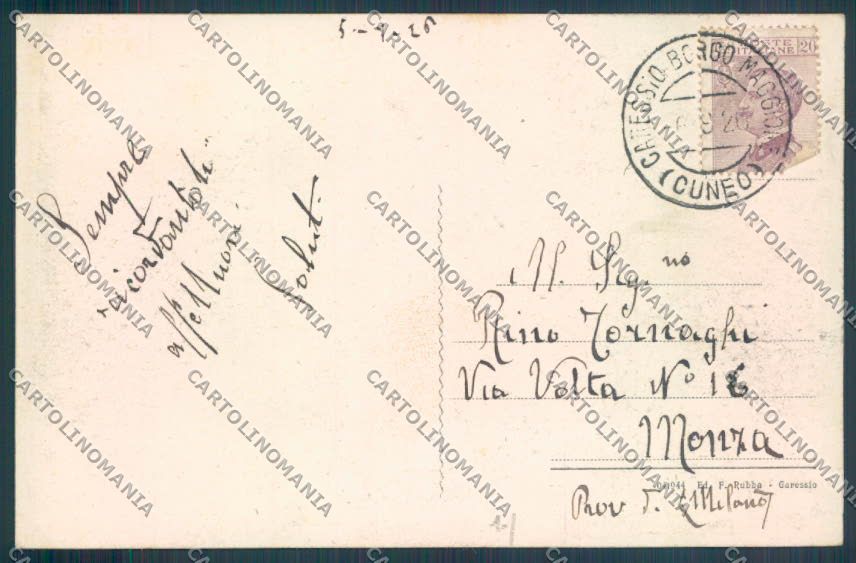 5-9-26
Sempre
ricordandoti
affettuosi
Saluti
POSTE ITALIANE 20
GARESSIO-BORGO MAGGIORE
(CUNEO)
M. Sig.no
Rino Tornaghi
Via Volta No 16
Monza
Prov d. Milano
Ed. F. Rubba - Garessio
CARTOLINOMANIA